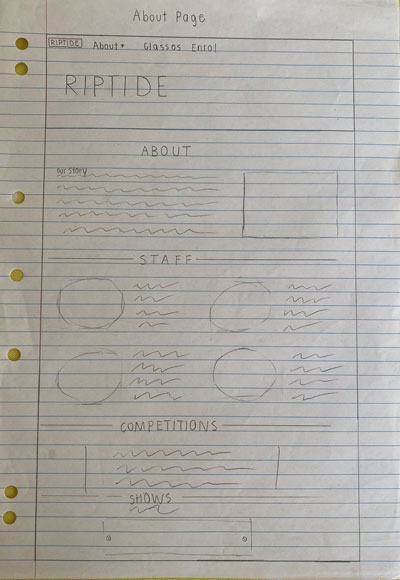 About Page
RIPTIDE About Classes Enrol
RIPTIDE
ABOUT
our story
STAFF
COMPETITIONS
SHOWS